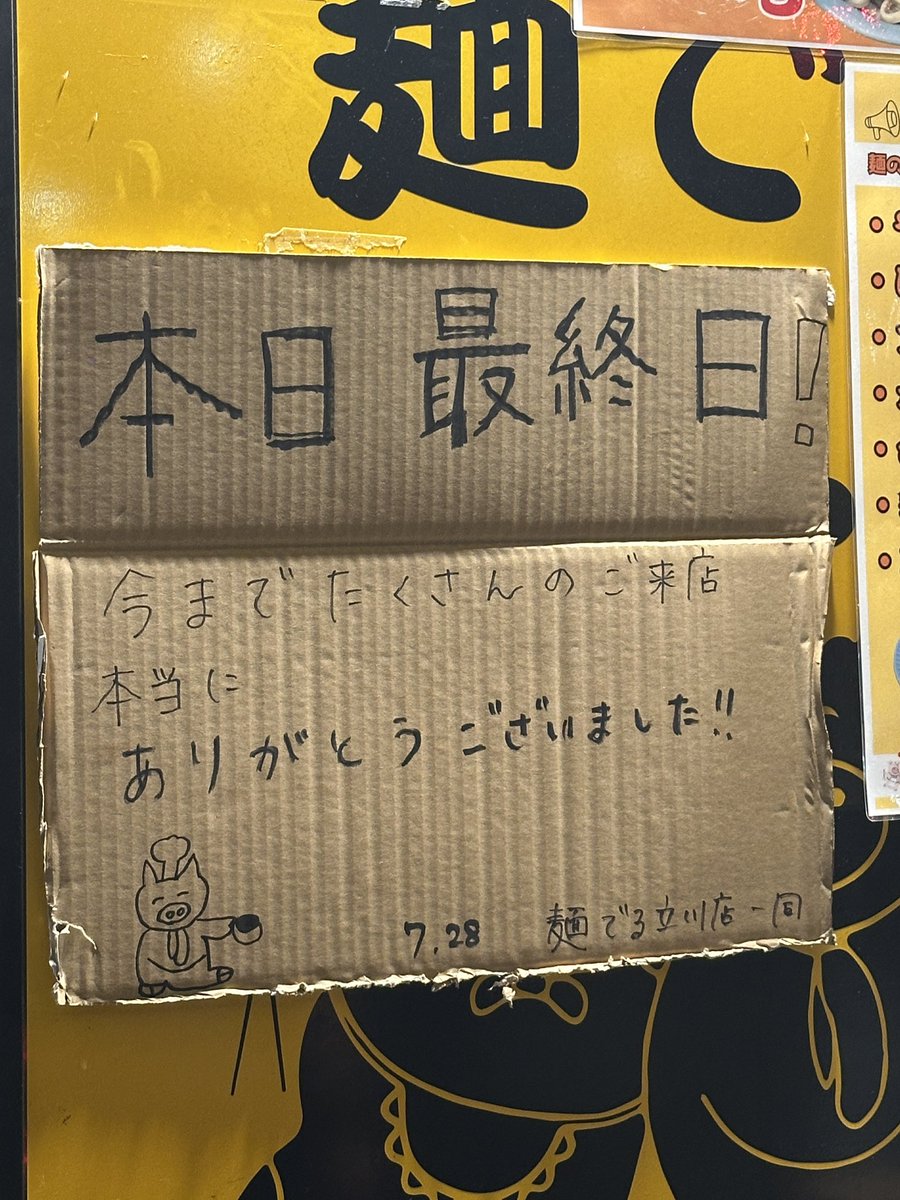 麺で
麺の
本日 最終日!
今までたくさんのご来店
本当に
ありがとうございました!!
7.28 麺でる立川店一同